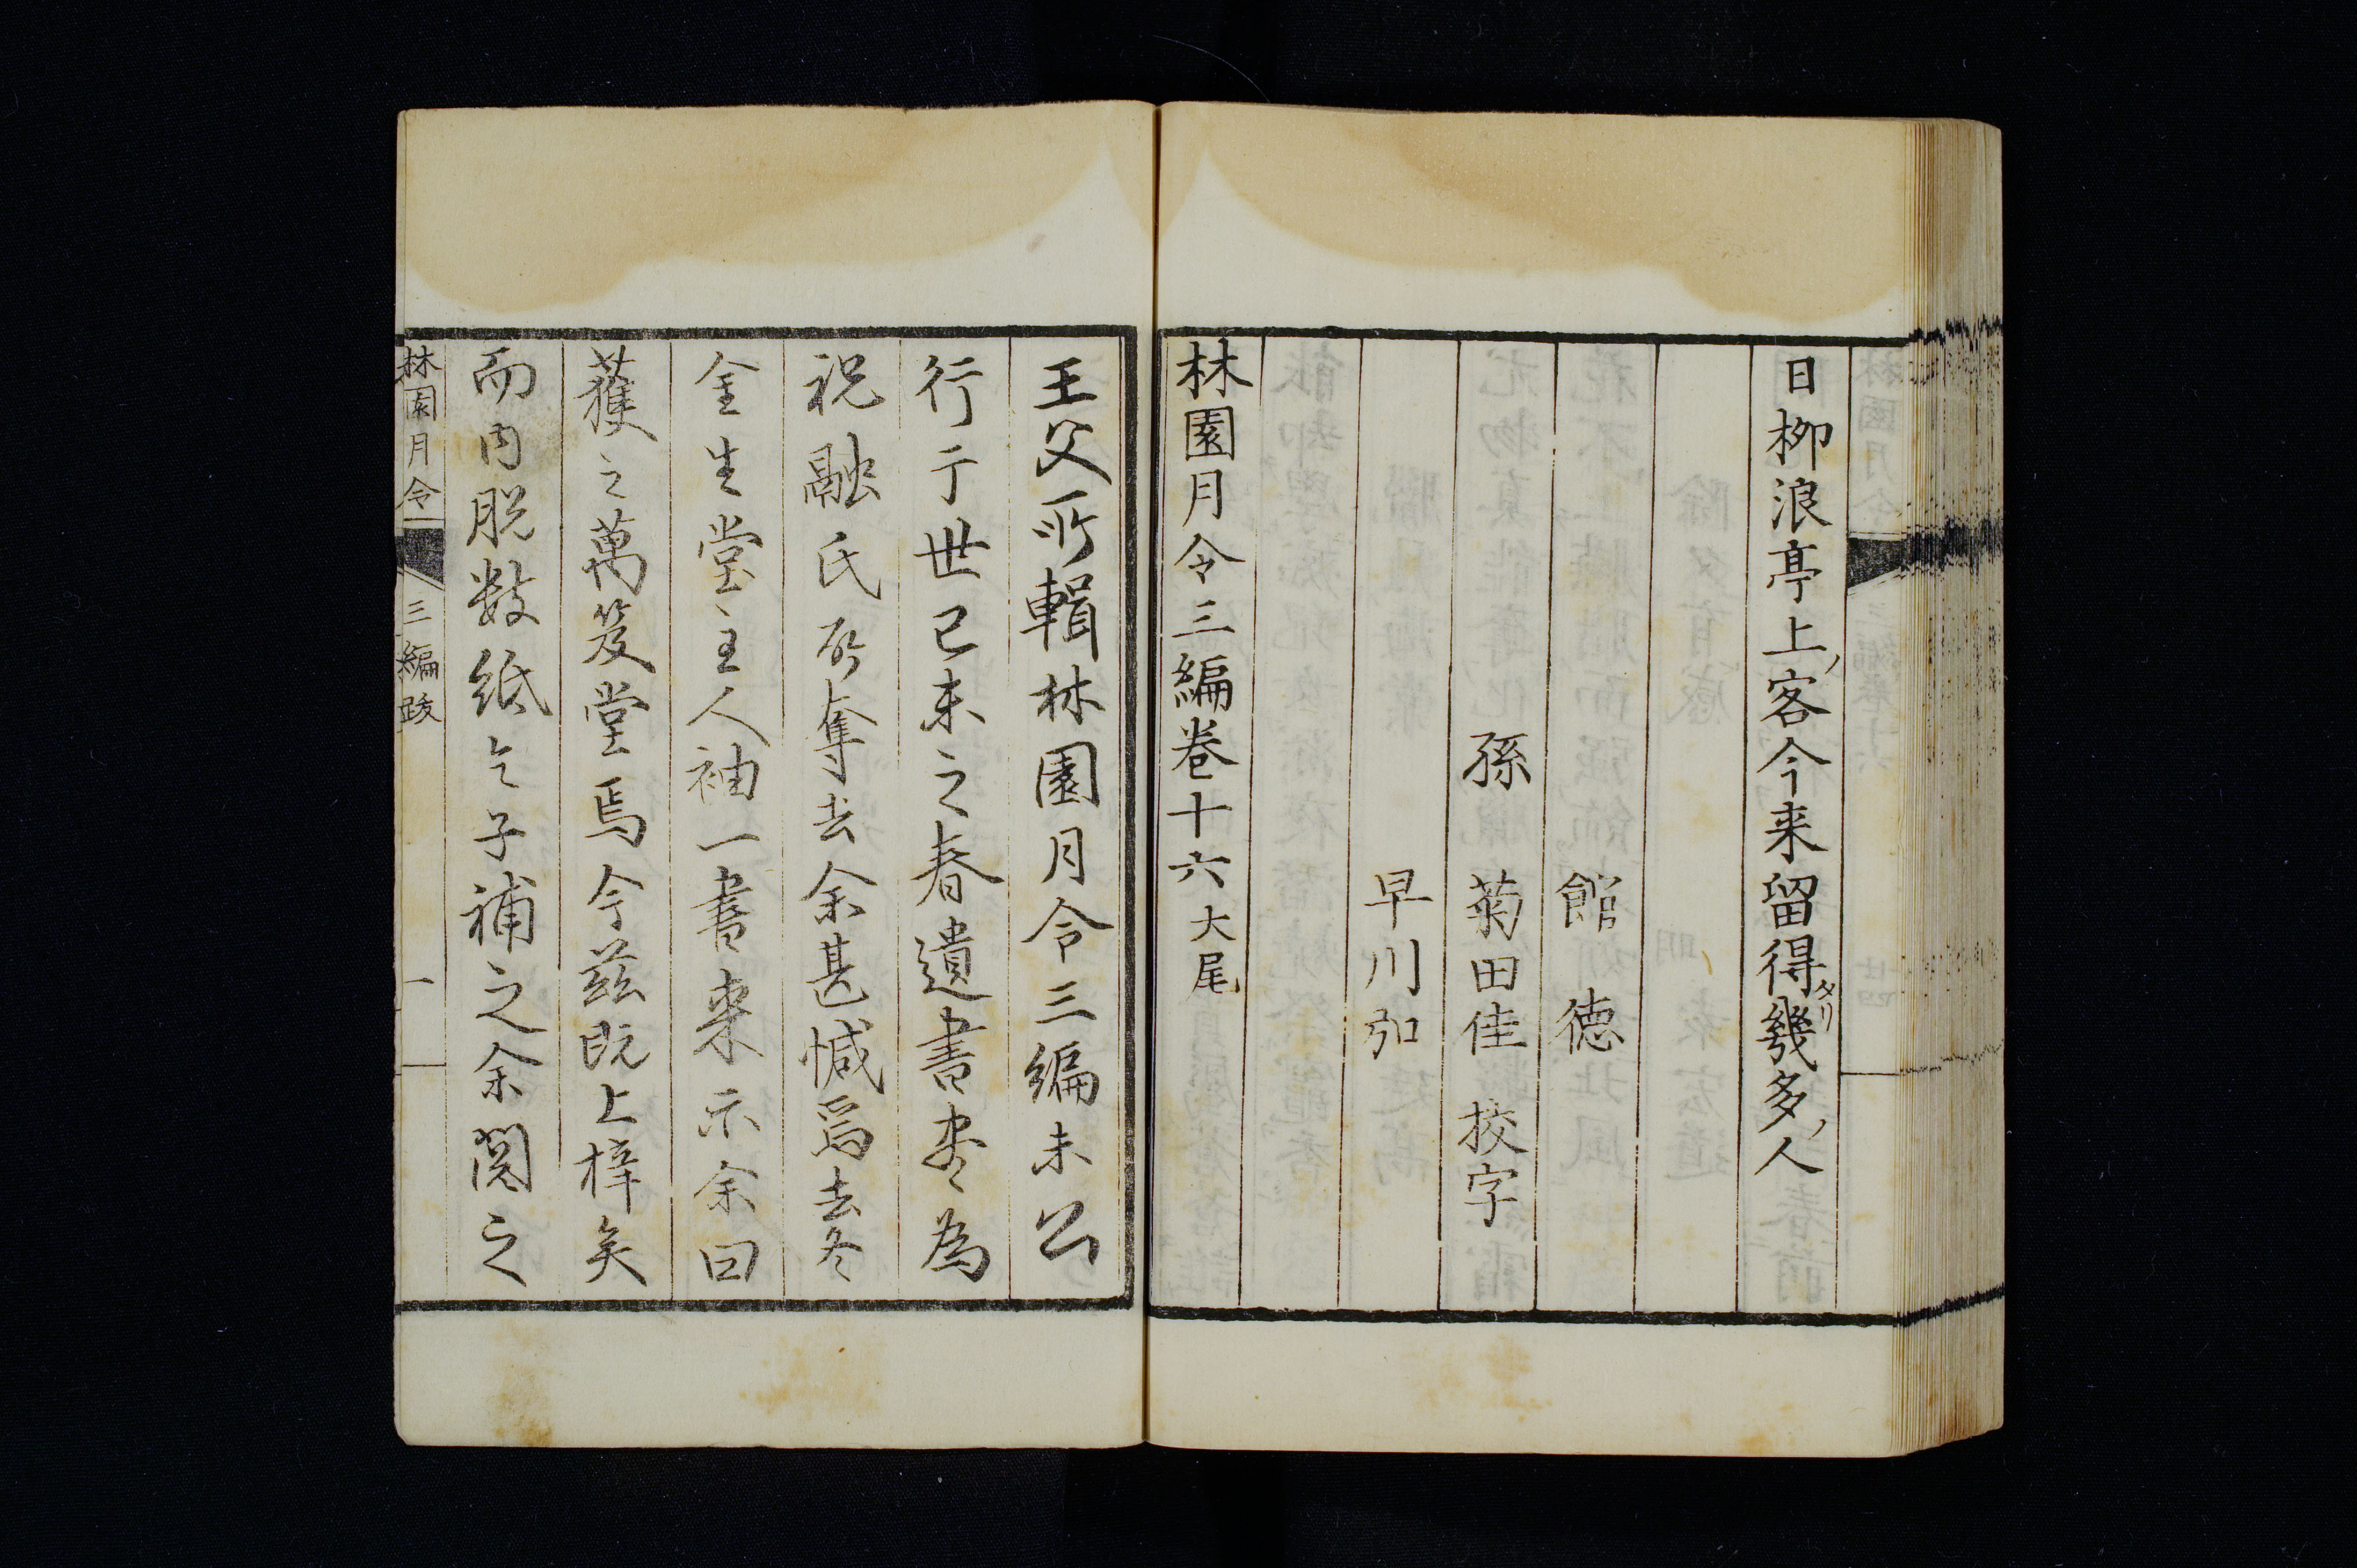 日柳浪亭上客今来留得幾多人
館徳
孫 菊田佳 挍字
早川弘
林園月令三編卷十六大尾
王父所輯林園月令三編未公
行于世己未之春遺書尽為
祝融氏所奪去余甚憾焉去冬
金生堂主人袖一書来示余曰
獲之萬笈堂焉今茲既上梓矣
而内脱数紙乞子補之余閲之
林園月令 三編跋 一